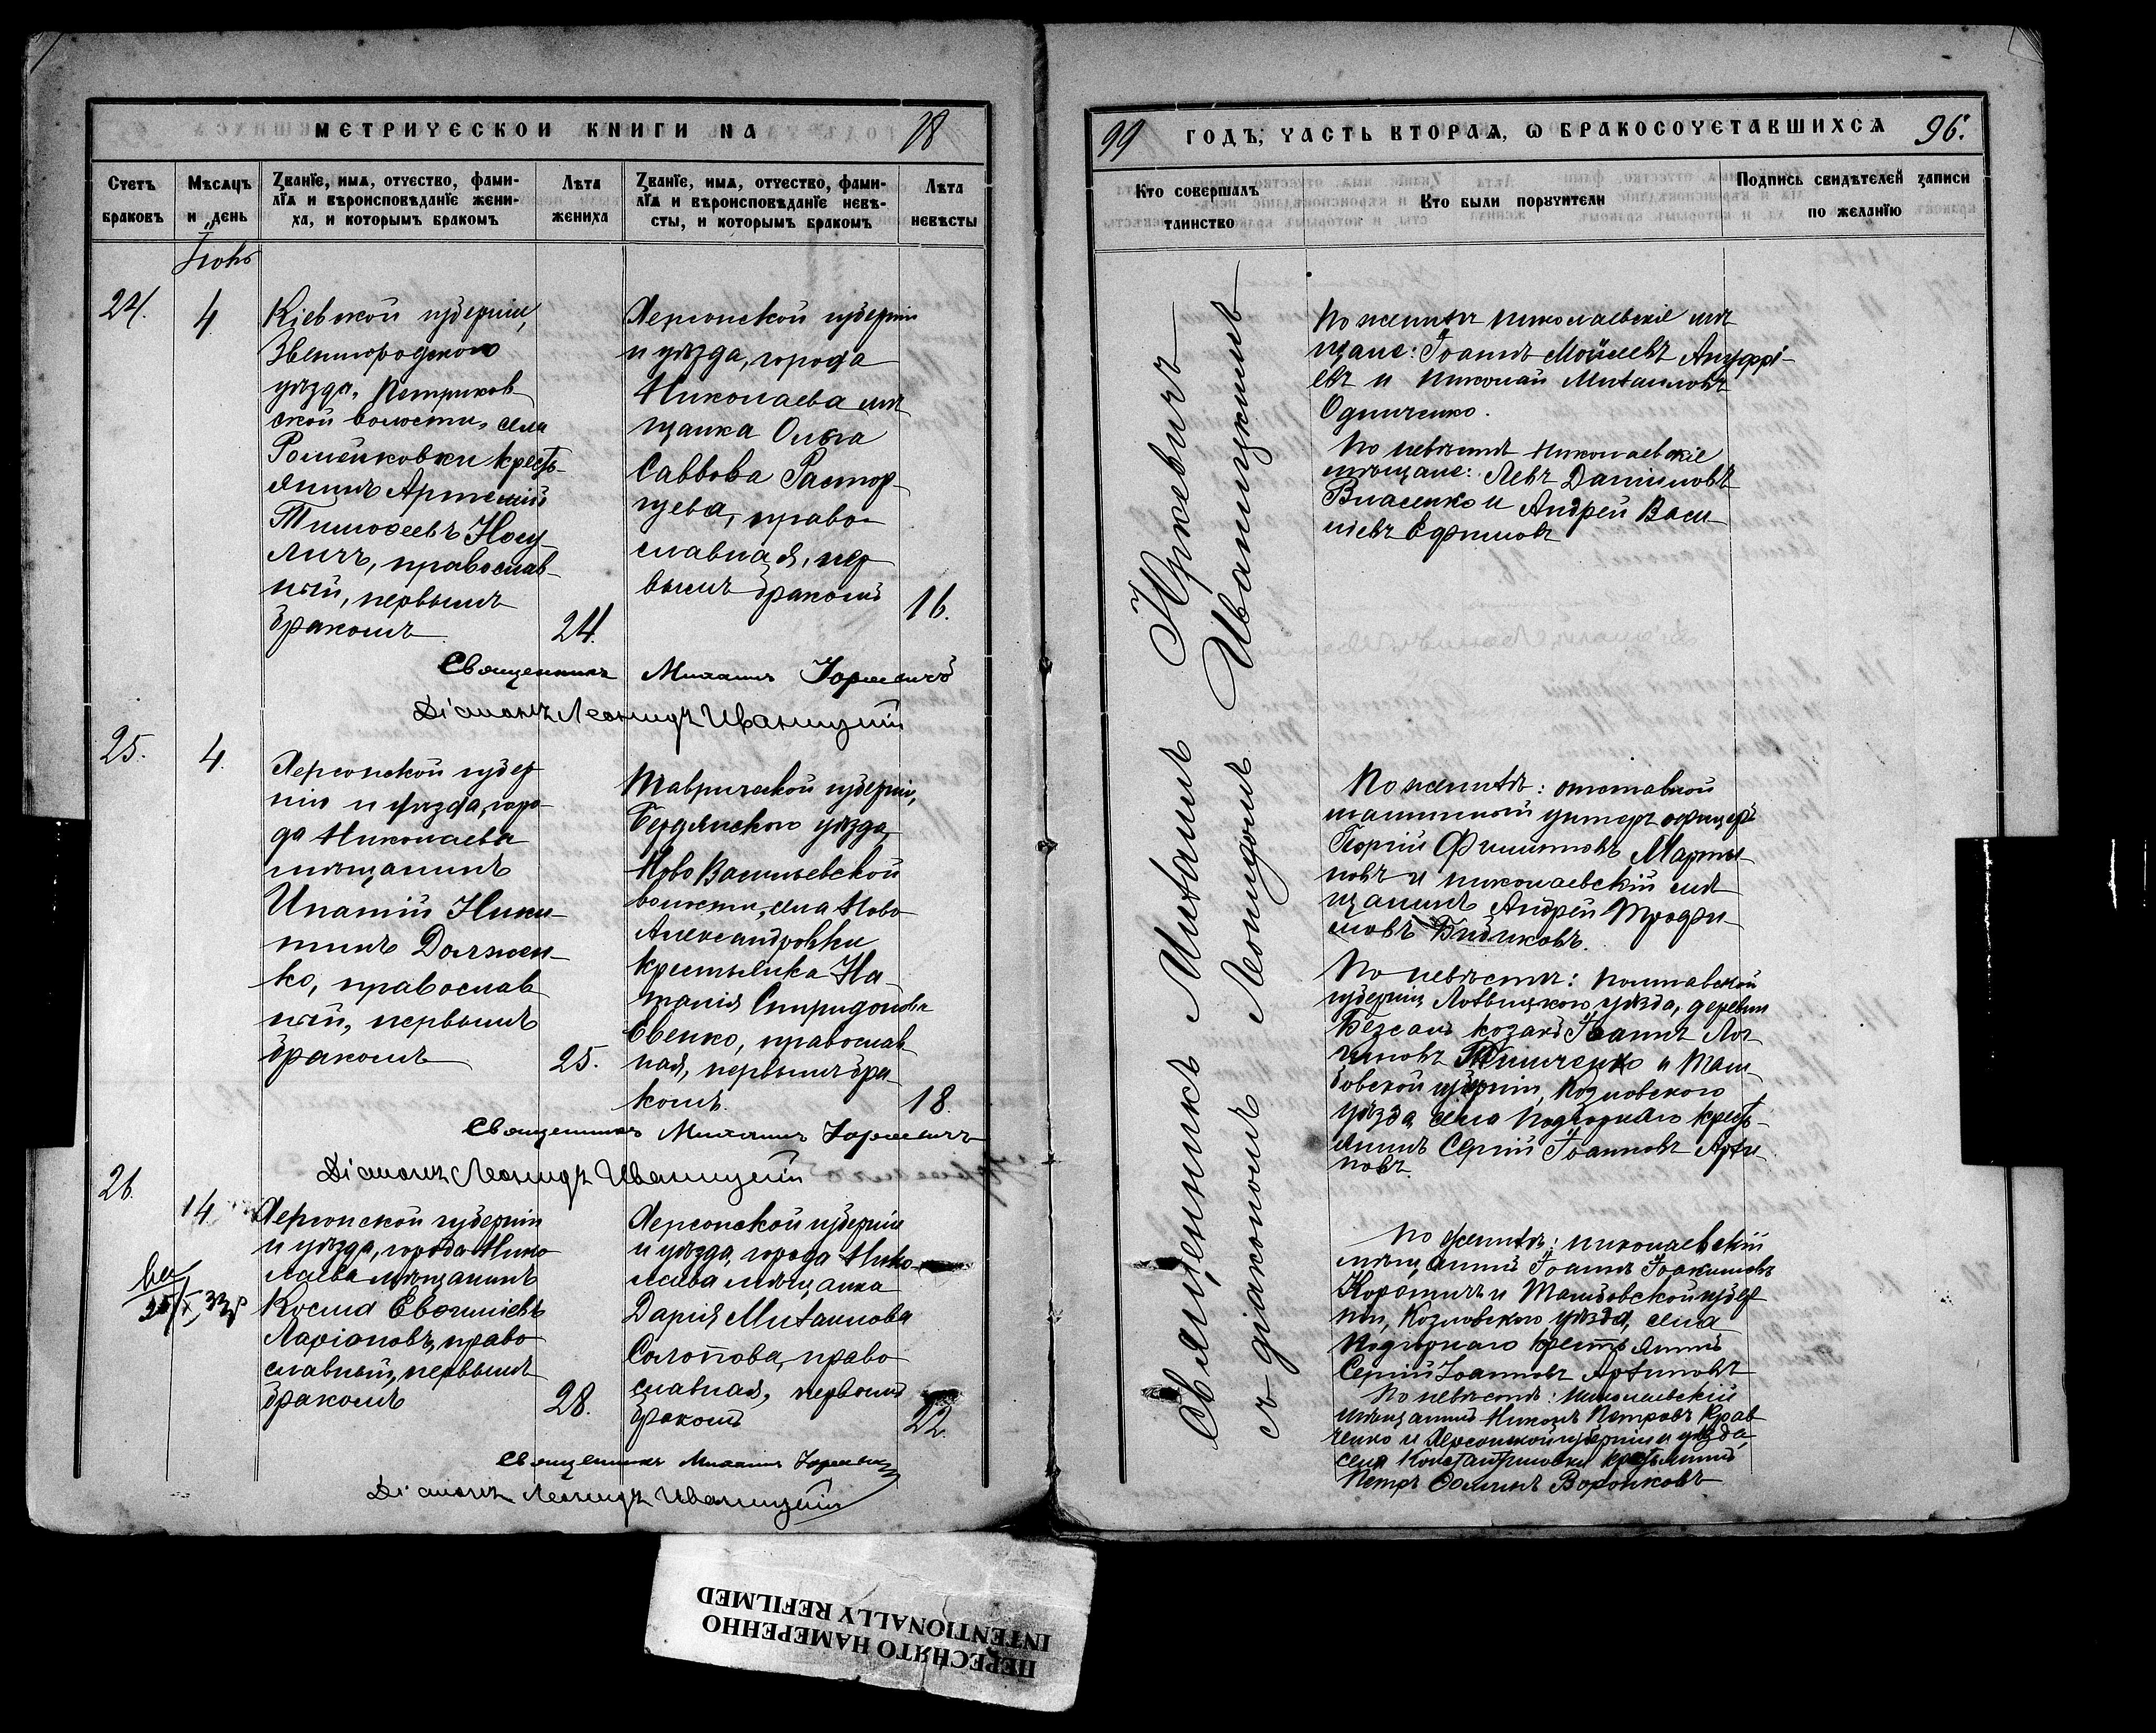 МЕТРИЧЕСКОЙ КНИГИ НА 18
Счетъ браковъ
Мѣсяцъ и день
Званїе, имя, отчество, фамилїя и вѣроисповѣданїе жениха, и которымъ бракомъ
Лѣта жениха
Званїе, имя, отчество, фамилїя и вѣроисповѣданїе невѣсты, и которымъ бракомъ
Лѣта невѣсты
Іюнь
24.
4
Кіевской губерніи,
Звенигородского
уѣзда, Петриков
ской волости, села
Ромейковки крестъ-
янинъ Артемій
Тимоѳеевъ Носу-
личъ, православ-
ный, первымъ
бракомъ
24.
Херсонской губерніи
и уѣзда, города
Николаева мѣ
щанка Ольга
Саввова Растор-
гуева, право-
славная, пер
вымъ бракомъ
16.
Священникъ Михаилъ Юркевичъ
Діаконъ Леонидъ Иваницкій
25.
4.
Херсонской губер
ніи и уѣзда, горо-
да Николаева
мѣщанинъ
Ипатій Ники-
тинъ Должен-
ко, православ
ный, первымъ
бракомъ
25.
Таврической губерніи,
Бердянского уѣзда,
Ново Васильевской
волости, села Ново
Александровки
крестьянка На-
талія Спиридонова
Евенко, православ
ная, первымъ бра-
комъ.
18.
Священникъ Михаилъ Юркевичъ
Діаконъ Леонидъ Иваницкій
26.
14
Херсонской губерніи
и уѣзда, города Нико
лаева мѣщанинъ
Косма Евѳиміевъ
Ларіоновъ, право
славный, первымъ
бракомъ
28.
Херсонской губерніи
и уѣзда, города Нико-
лаева мѣщанка
Дарія Михаилова
Солопова, право
славная, первымъ
бракомъ
22.
Священникъ Михаилъ Юркевичъ
Діаконъ Леонидъ Иваницкій
99 ГОДЪ, ЧАСТЬ ВТОРАЯ, Ѡ БРАКОСОЧЕТАВШИХСЯ 96.
Кто совершалъ таинство
Кто были поручители
Подпись свидѣтелей записи по желанїю
Священникъ Михаилъ Юркевичъ
съ діакономъ Леонидомъ Иваницкимъ
По женихѣ николаевскіе мѣ
щане: Іоаннъ Мойсеевъ Ануфрі-
евъ и Николай Михаиловъ
Одниченко.
По невѣстѣ николаевскіе
мѣщане: Левъ Даниловъ
Власенко и Андрей Васи-
ліевъ Ефимовъ
По женихѣ: отставной
унтеръ офицеръ
Георгій Филипповъ Марты-
новъ и николаевскій мѣ
щанинъ Андрей Трофи-
мовъ
По невѣстѣ: полтавской
губерніи Лохвицкого уѣзда, деревни
козакъ Іоаннъ
Тимченко и Там-
бовской губерніи, Козловского
уѣзда села Подгорнаго кресть-
янинъ Сергій Іоанновъ Архи-
повъ
По женихѣ: николаевскій
мѣщанинъ Іоаннъ Іоакимовъ
и Тамбовской губер
ніи, Козловского уѣзда, села
Подгорнаго крестьянинъ
Сергій Іоанновъ Архиповъ
По невѣстѣ: николаевскій
мѣщанинъ Петровъ Крав
ченко и Херсонской губерніи и уѣзда
села Константиновки крестьянинъ
Петръ Ѳоминъ Воронковъ
ПЕРЕСНЯТО НАМЕРЕННО
INTENTIONALLY REFILMED